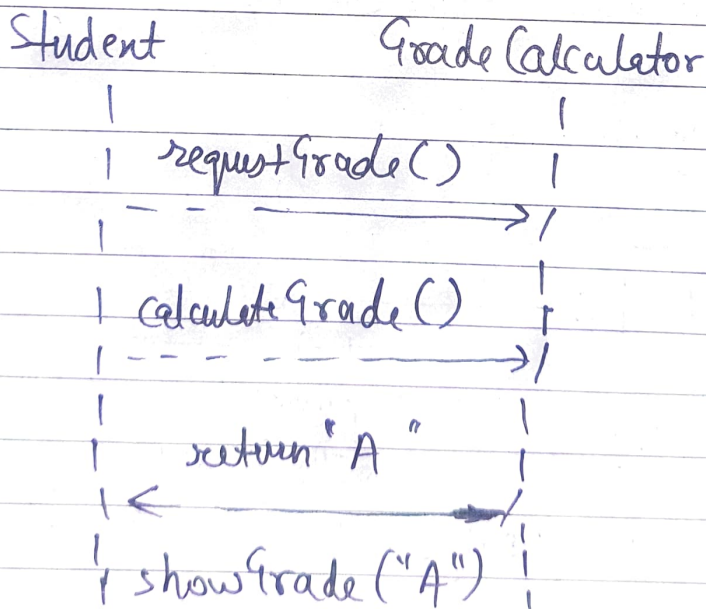 Student GradeCalculator
requestGrade()
calculateGrade()
return "A"
showGrade("A")